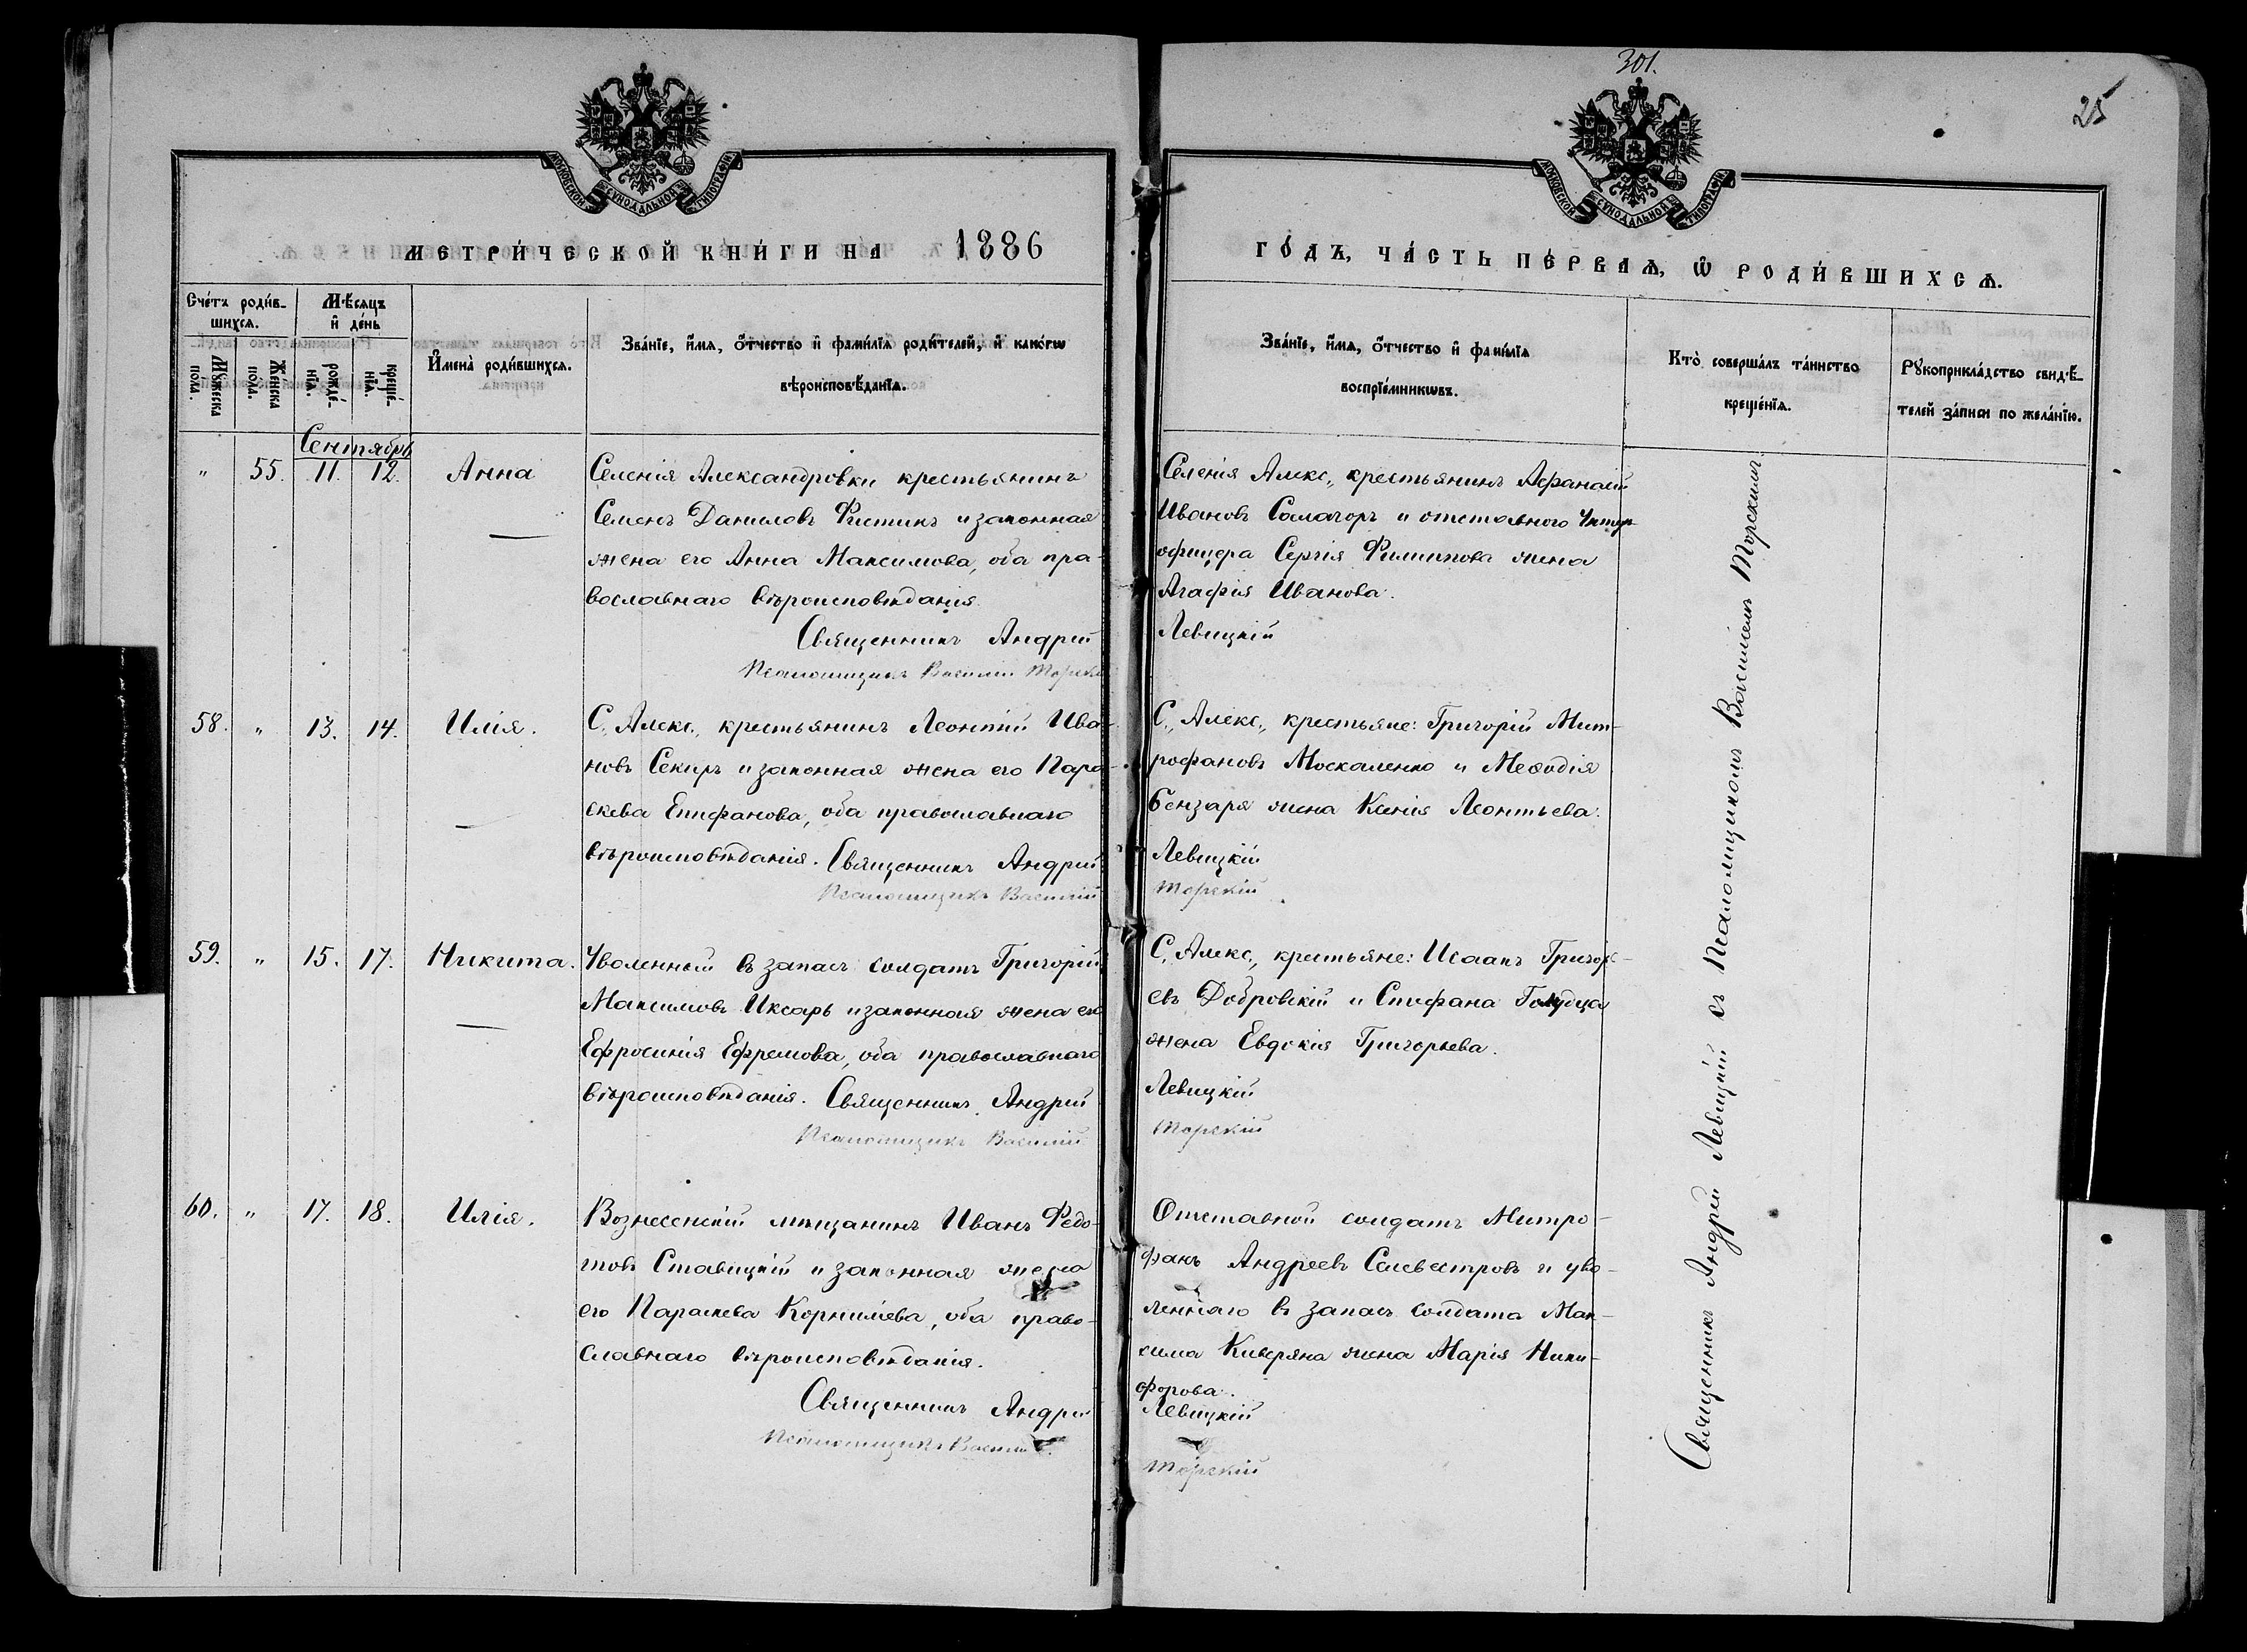 301.
25
МОСКОВСКОЙ СУНОДАЛЬНОЙ ТИПОГРАФІИ
МОСКОВСКОЙ СУНОДАЛЬНОЙ ТИПОГРАФІИ
МЕТРИ́ЧЕСКОЙ КНИ́ГИ НА 1886
ГО́ДЪ, ЧА́СТЬ ПЕ́РВАѦ, Ѿ РОДИ́ВШИХСѦ.
Сче́тъ роди́в-
шихсѧ.
Мꙋжеска
по́ла.
Женска
по́ла.
Мѣ́сѧцъ
и҆ де́нь
рожде́-
нїѧ.
креще́-
нїѧ.
И҆мена̀ роди́вшихсѧ.
Зва́нїе, и҆́мѧ, ѻ҆́тчество и҆ фами́лїѧ роди́телей, и҆ како́гѡ
вѣроисповѣ́данїѧ.
Зва́нїе, и҆́мѧ, ѻ҆́тчество и҆ фами́лїѧ
воспрїе́мникѡвъ.
Кто̀ соверша́лъ та́инство
креще́нїѧ.
Рꙋкоприкла́дство свидѣ́-
телей за́писи по жела́нїю.
Сентябрь
" 55. 11. 12. Анна
Селенія Александровки крестьянинъ
Семенъ Даниловъ Фистикъ и законная
жена его Анна Максимова, оба пра-
вославнаго вѣроисповѣданія.
Священникъ Андрей
Псаломщикъ Василій Торскі
Селенія Алекс., крестьянинъ Афанасій
Ивановъ Саматоръ и отставного Унтер
офицера Сергія Филиппова жена
Агафія Иванова.
Левицкій
58. " 13. 14. Илія.
С. Алекс., крестьянинъ Леонтій Ива-
новъ Секиръ и законная жена его Пара-
скева Епифанова, оба православнаго
вѣроисповѣданія. Священникъ Андрей
Псаломщикъ Василій
С., Алекс., крестьяне: Григорій Мит-
рофановъ Москаленко и Меѳодія
Бензаря жена Ксенія Леонтьева.
Левицкій
Торскій
59. " 15. 17. Никита.
Уволенный въ запасъ солдатъ Григорій
Максимовъ Иксарь и законная жена его
Ефросинія Ефремова, оба православнаго
вѣроисповѣданія. Священникъ Андрей
Псаломщикъ Василій
С, Алекс., крестьяне: Исаакъ Григорь-
евъ Добровскій и Стефана Голубца
жена Евдокія Григорьева.
Левицкій
Торскій
60. " 17. 18. Илія.
Вознесенскій мѣщанинъ Иванъ Федо-
товъ Ставицкій и законная жена
его Параскева Корниліева, оба право-
славнаго вѣроисповѣданія.
Священникъ Андрей
Псаломщикъ Василій
Отставной солдатъ Митро-
фанъ Андреевъ Селевестровъ и уво-
леннаго въ запасъ солдата Мак-
сима Киверяна жена Марія Ники-
форова.
Левицкій
Торскій
Священникъ Андрей Левицкій съ Псаломщикомъ Василіемъ Торскимъ